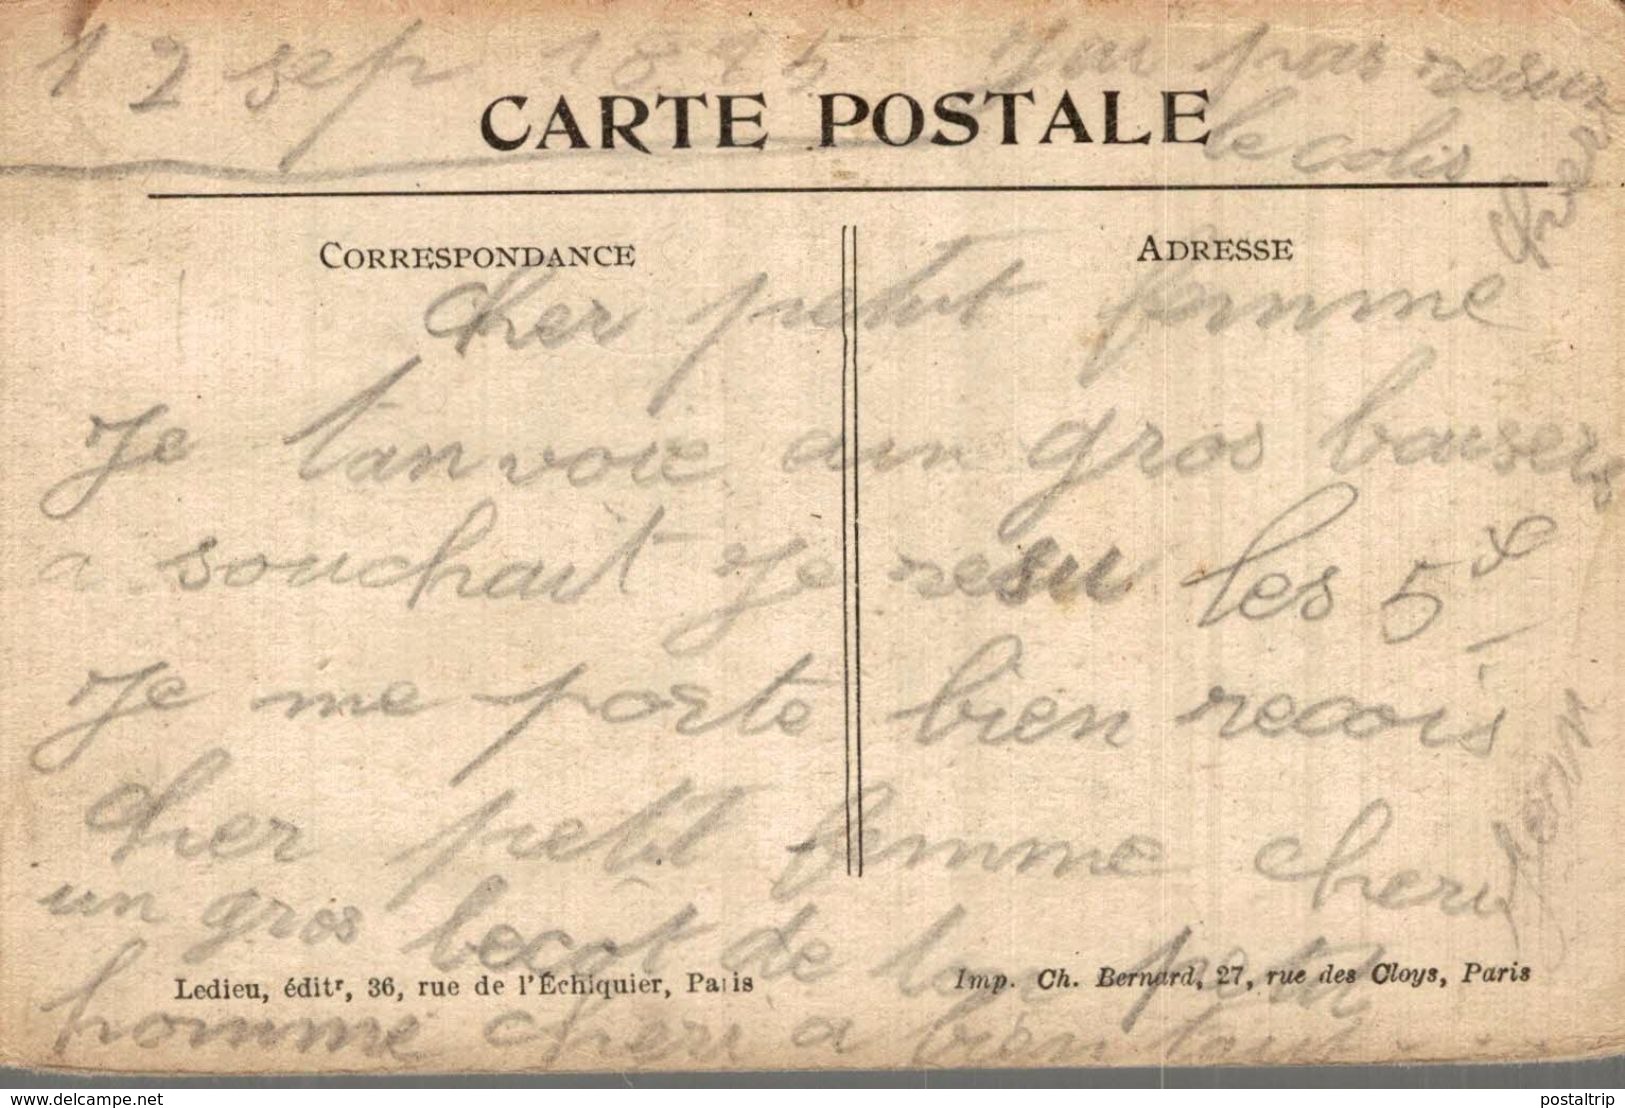 12 sep 1915 J'ai pas resu
le colis
CARTE POSTALE
CORRESPONDANCE
ADRESSE
cher petit femme
Je t'an voie aun gros baisers
a souchait Je resu les 5
Je me porte bien recois
cher petit femme cheri
un gros becot de ton petit
Ledieu, éditr, 36, rue de l'Échiquier, Paris
Imp. Ch. Bernard, 27, rue des Cloys, Paris
homme cheri a bien tout
delcampe.net
postaltrip